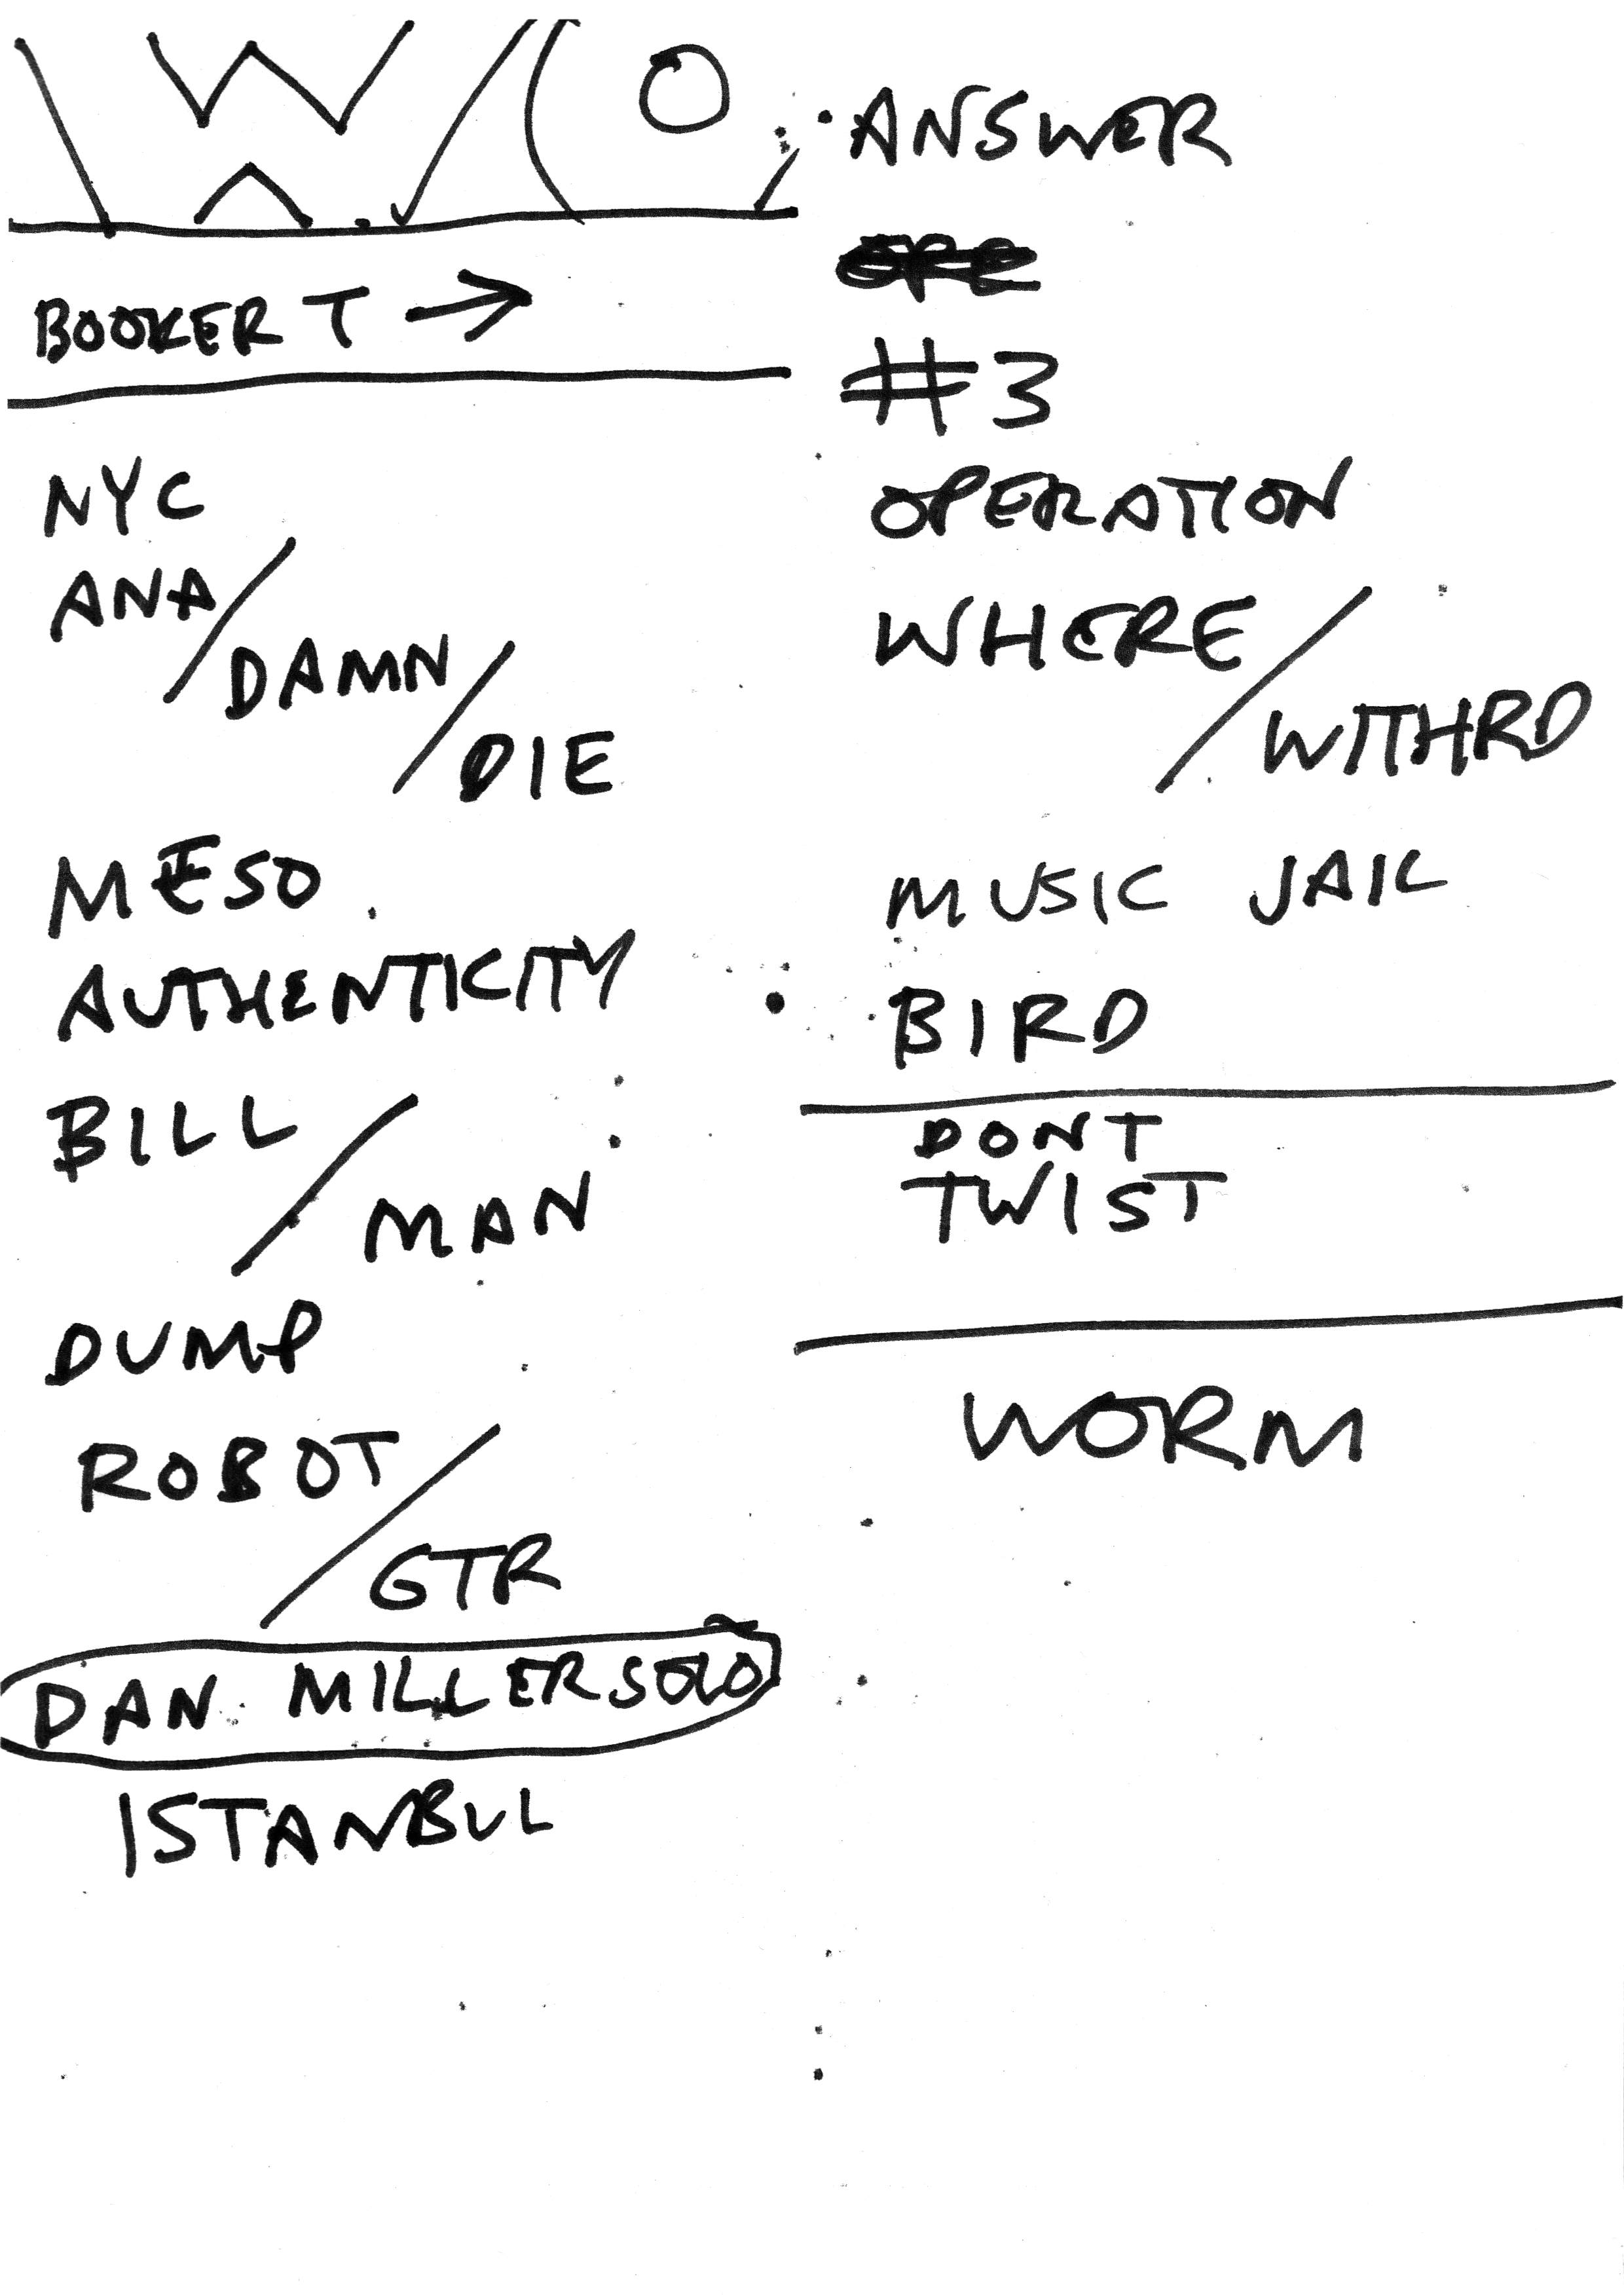 BOOKER T →
NYC
ANA/
DAMN/
DIE
MESO
AUTHENTICITY
BILL/
MAN
DUMP
ROBOT/
GTR
DAN MILLER SOLO
ISTANBUL
ANSWER
#3
OPERATION
WHERE/
WITHRD
MUSIC JAIL
BIRD
DONT
TWIST
WORM